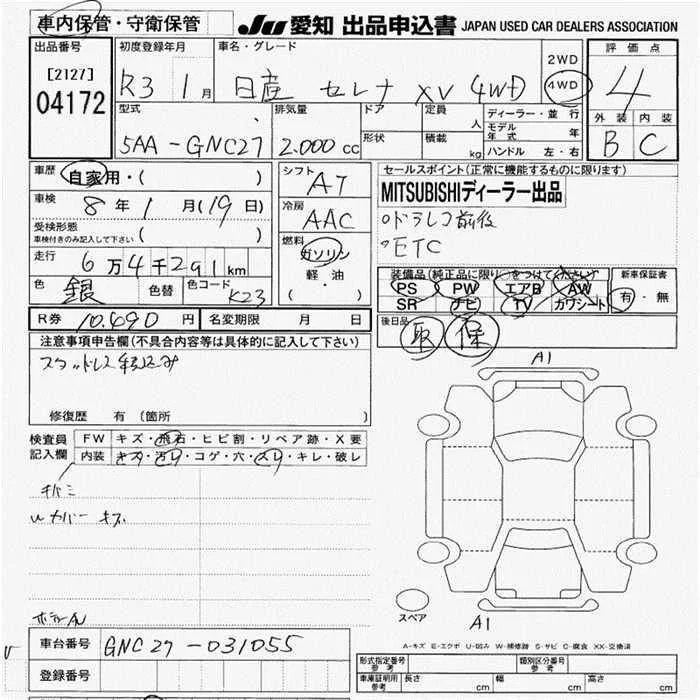 車内保管・守衛保管
JU 愛知 出品申込書 JAPAN USED CAR DEALERS ASSOCIATION
出品番号
[2127]
04172
初度登録年月
R3 1月
車名・グレード
日産 セレナ XV 4WD
2WD
4WD
評価点
4
外装 内装
B C
型式
5AA-GNC27
排気量
2.000cc
ドア
形状
定員 人
積載 kg
ディーラー・並行
モデル年式 年
ハンドル 左・右
車歴
自家用・( )
車検
8年1月(19日)
受検形態
車検付きのみ記入して下さい ( )
走行
6万4千291km
色 銀 色替 色コード K23
シフト
AT
冷房
AAC
燃料
ガソリン
軽・油
( )
セールスポイント(正常に機能するものに限ります)
MITSUBISHIディーラー出品
○ドラレコ前後
○ETC
装備品(純正品に限り○をつけてください)
PS PW エアB AW
SR ナビ TV カワシート
新車保証書
有・無
R券 10.490円 名変期限 月 日
後日品
取 保
注意事項申告欄(不具合内容等は具体的に記入して下さい)
スタッドレス積込み
修復歴 有(箇所
検査員記入欄
FW キズ・飛石・ヒビ割・リペア跡・X要
内装 キズ・汚レ・コゲ・穴・スレ・キレ・破レ
A1
スペア
A1
A-キズ E-エクボ U-凹み W-補修跡 S-サビ C-腐食 XX-交換済
車台番号
GNC27-031055
登録番号
形式指定番号 参考
類別区分番号 参考
車庫証明用 参考
長さ cm 幅 cm 高さ cm